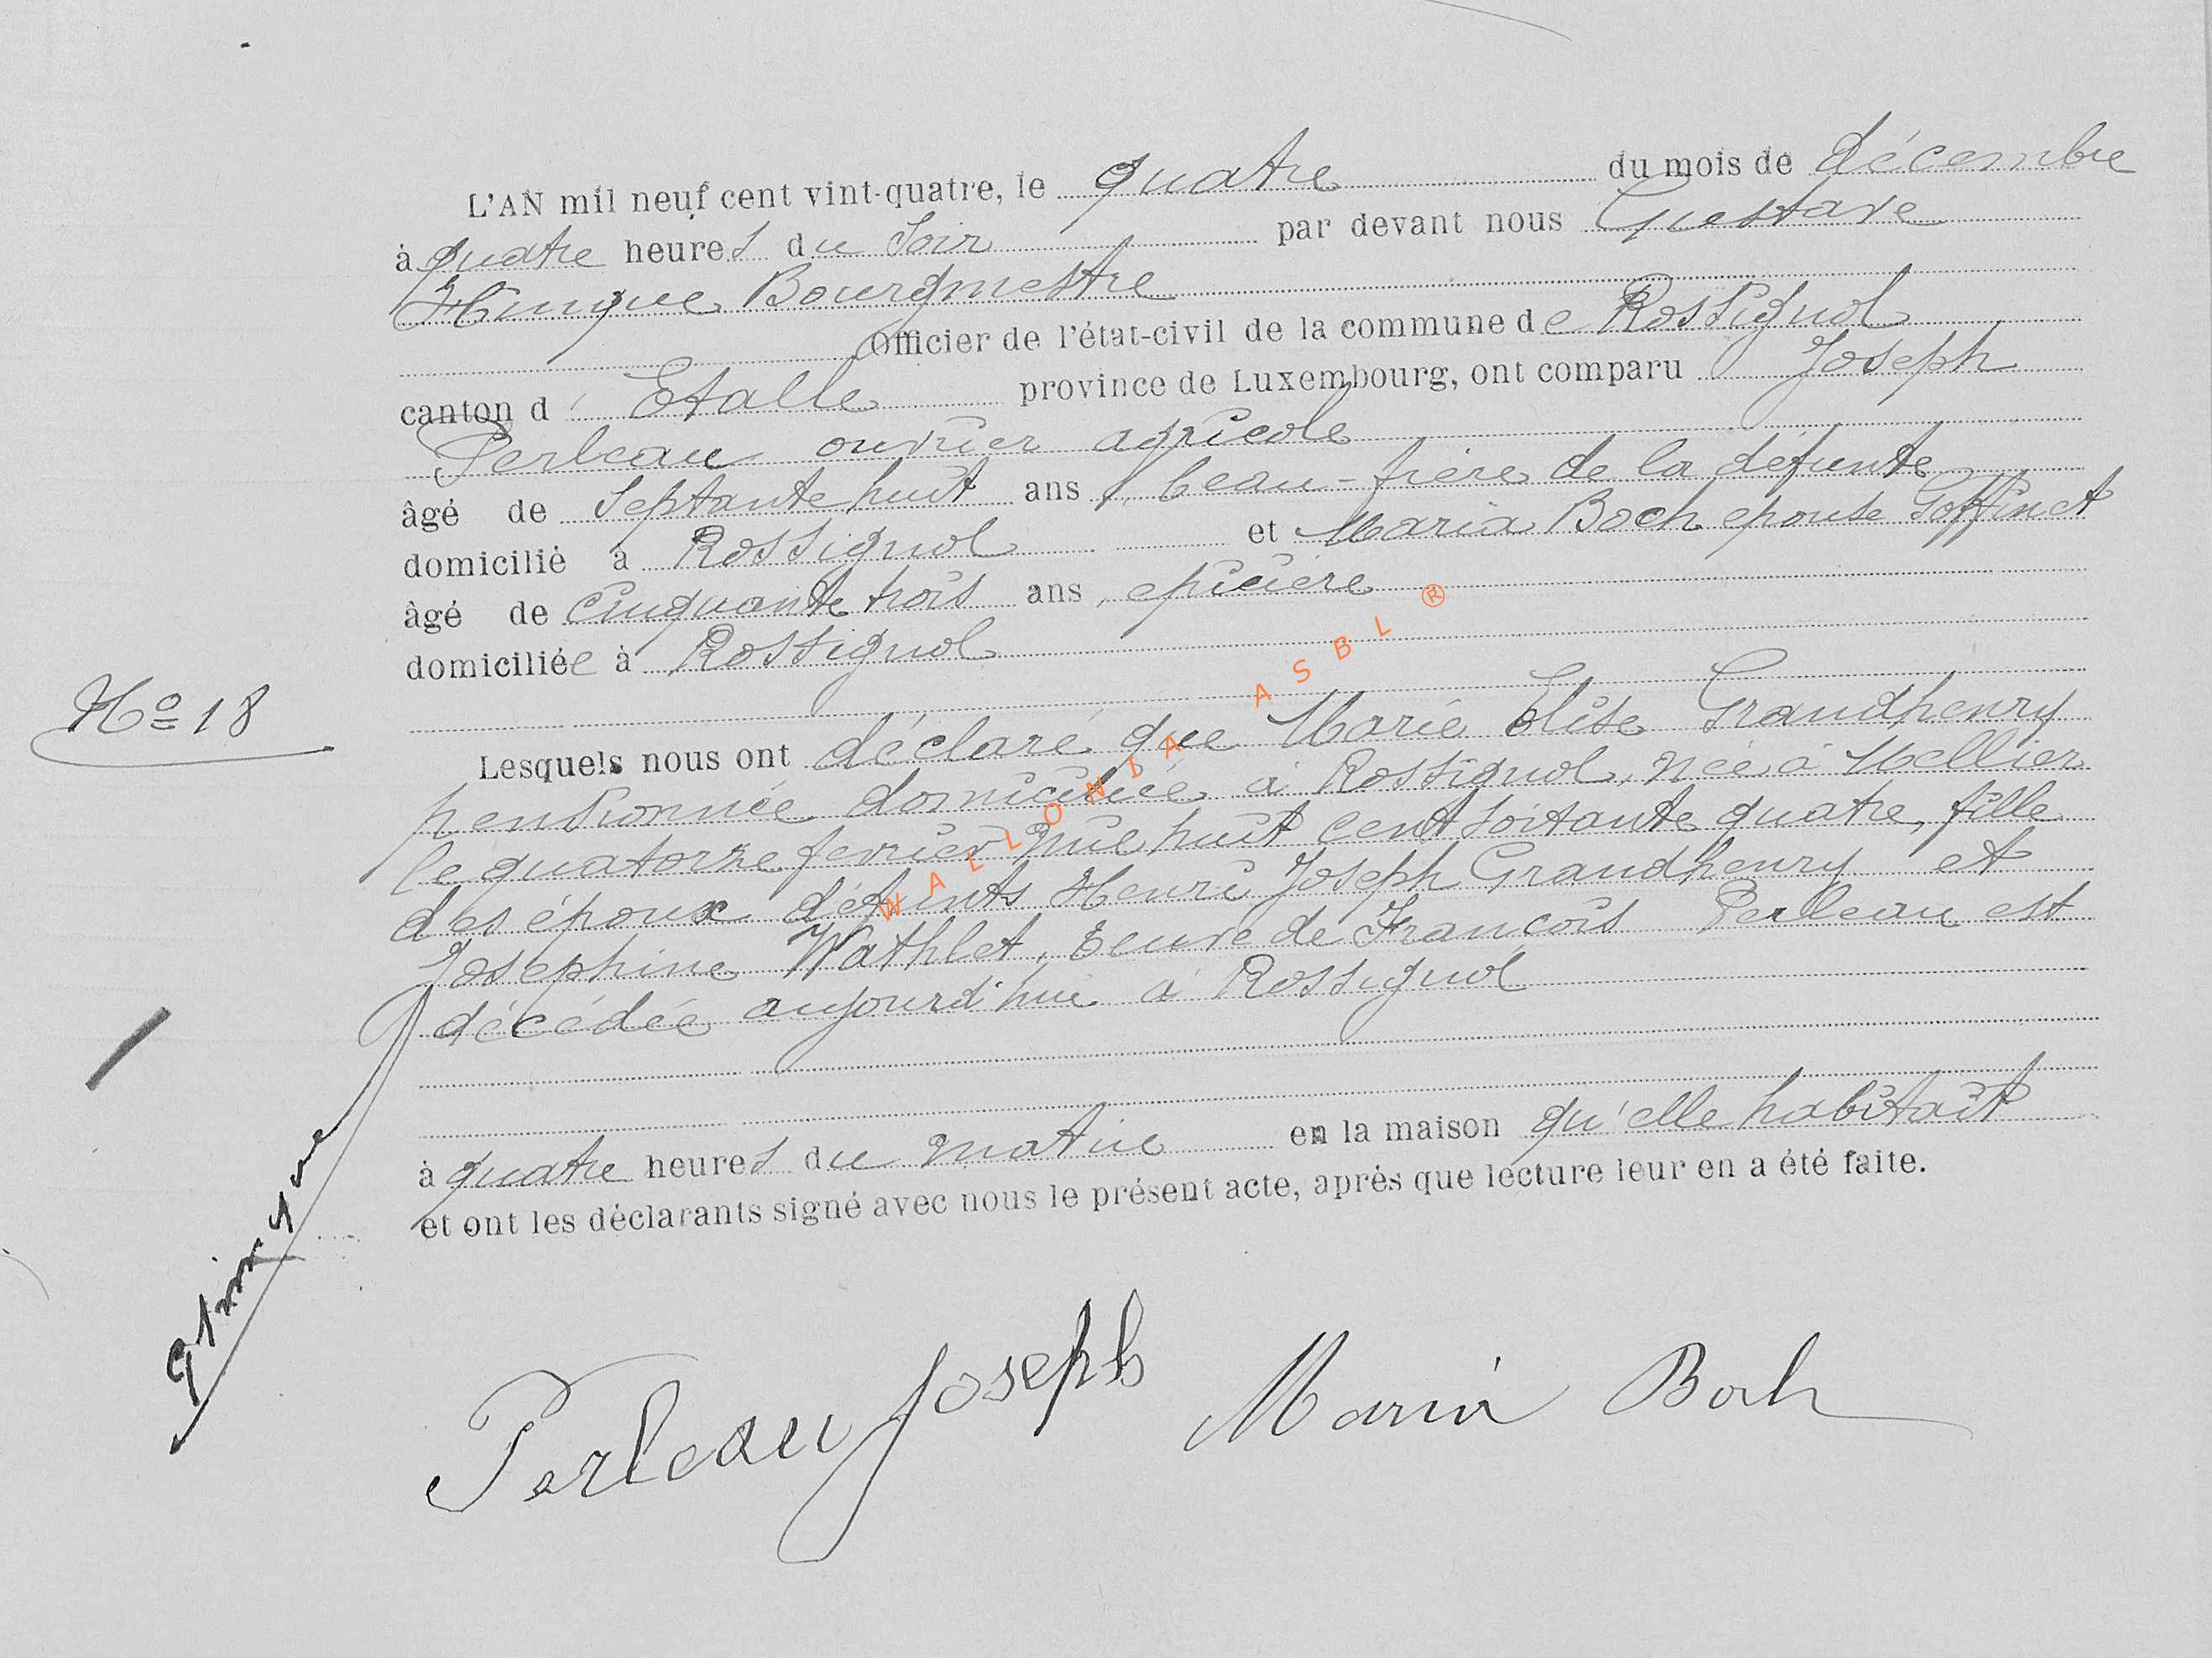 L'AN mil neuf cent vint-quatre, le quatre du mois de décembre
à quatre heures du soir par devant nous Gustave
Hinque Bourgmestre
Officier de l'état-civil de la commune de Rossignol
canton d'Etalle province de Luxembourg, ont comparu Joseph
Perleau ouvrier agricole
âgé de septante huit ans, beau-frère de la défunte
domicilié à Rossignol et Maria Boch epouse Goffinet
âgé de cinquante trois ans, epicière
domiciliée à Rossignol
Nº 18
Lesquels nous ont déclaré que Marie Elise Grandhenry
pensionnée domiciliée à Rossignol, née à Mellier
le quatorze fevrier mil huit cent soixante quatre, fille
des époux défunts Henri Joseph Grandhenry et
Josephine Wathlet, veuve de François Perleau est
décédée aujourd'hui à Rossignol
à quatre heures du matin en la maison qu'elle habitait
et ont les déclarants signé avec nous le présent acte, après que lecture leur en a été faite.
Perleau Joseph Maria Boch
WALLONIA ASBL ®